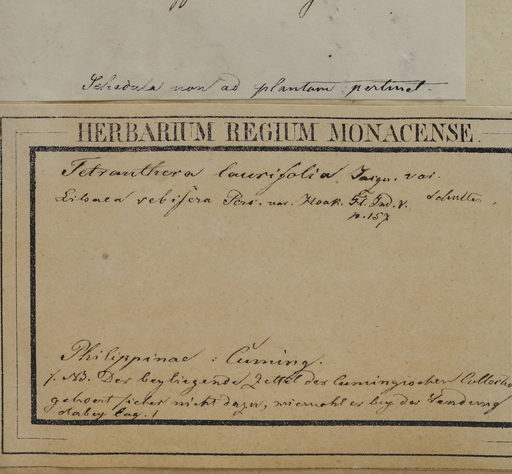 Schedula non ad plantam pertinet.
HERBARIUM REGIUM MONACENSE.
Tetranthera laurifolia Jacqu. var.
Litsaea sebifera Pers. var. Hook. Fl. Ind. V. Schultes,
p. 157
Philippinae : Cuming.
NB. Der beyliegende Zettel der Cumingischen Collectio
gehoert sicher nicht dazu, vielmehr er bey der Sendung